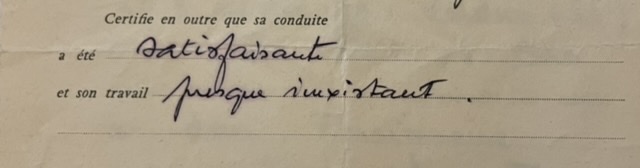 Certifie en outre que sa conduite
a été satisfaisante
et son travail presque inexistant.